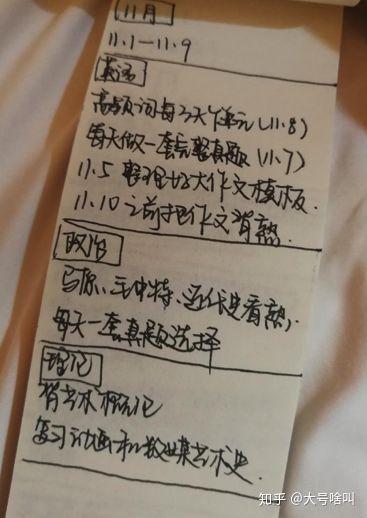 11月
11.1—11.9
英语
高频词每3天1单元(11.8)
每天做一套完整真题(11.7)
11.5 整理好大作文模板.
11.10之前把作文背熟.
政治
马原、毛中特、近代史看熟,
每天一套真题选择
理论
背艺术概论
复习动画和数媒艺术史.
知乎 @大号啥叫